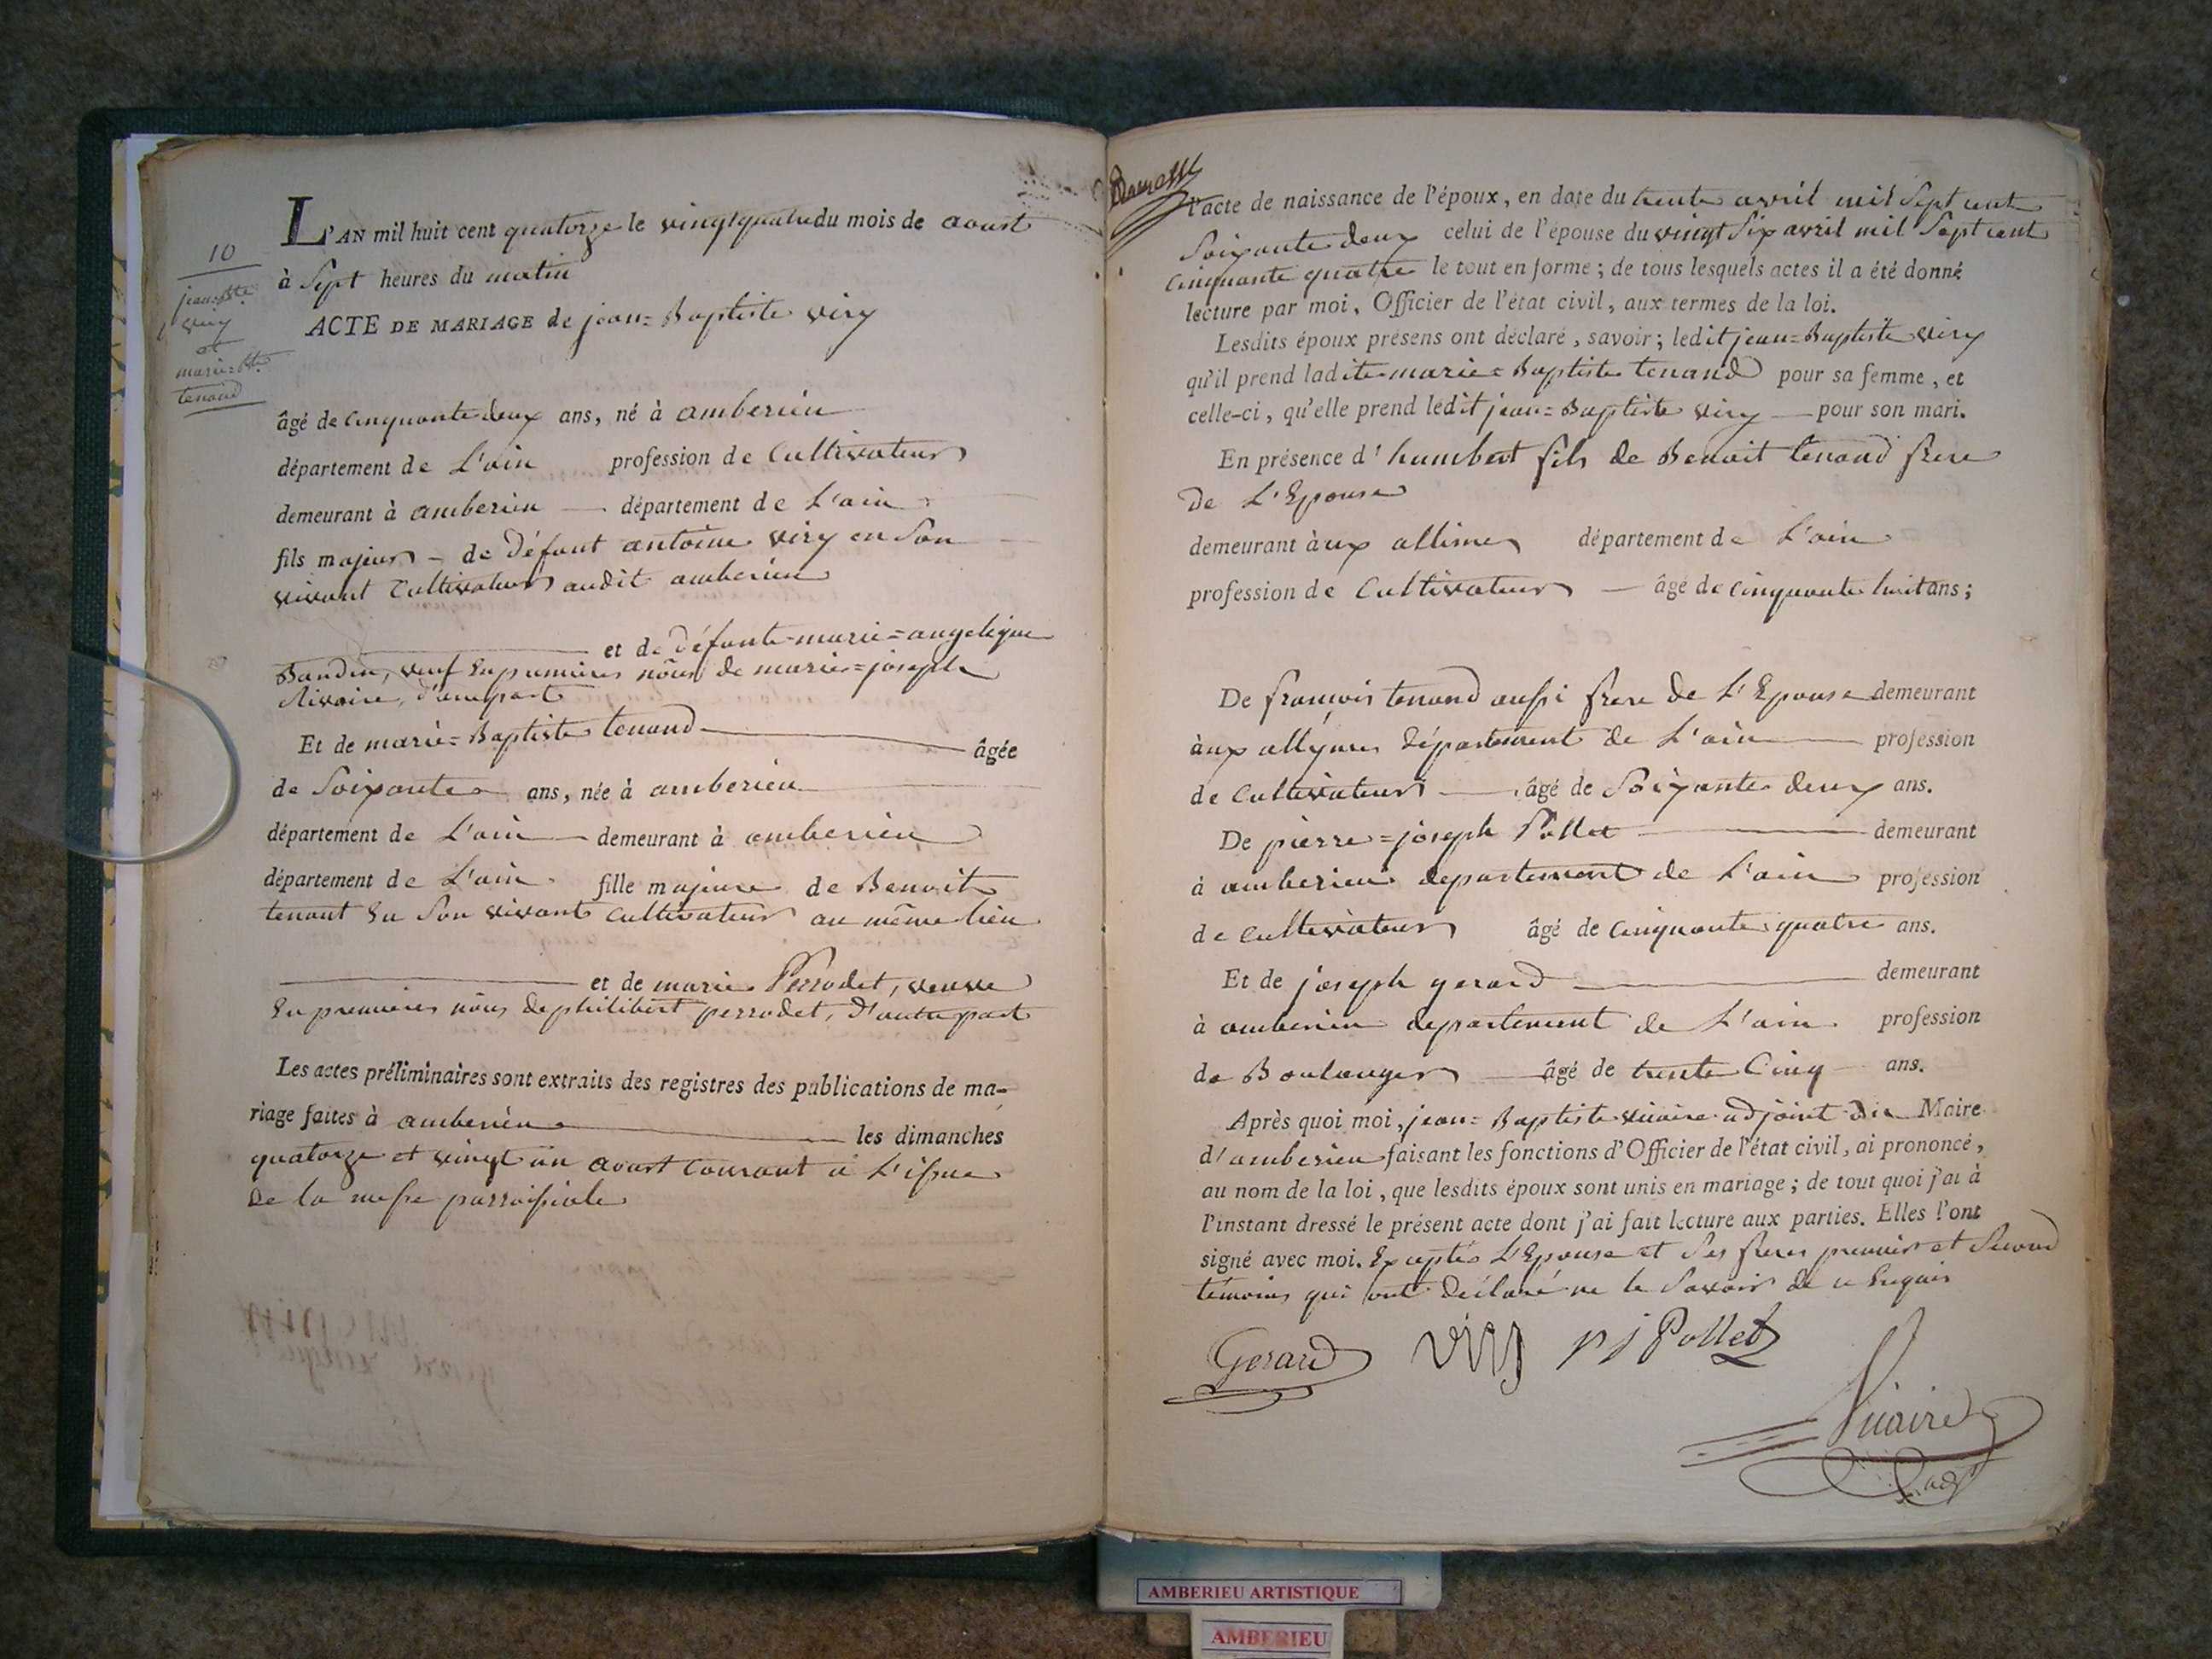 10
jean=Bte
viry
et
marie=Bte
tenand
L'AN mil huit cent quatorze le vingt quatre du mois de aoust
à Sept heures du matin
ACTE DE MARIAGE de jean=Baptiste viry
âgé de cinquante deux ans, né à amberieu
département de L'ain profession de Cultivateur
demeurant à amberieu département de L'ain
fils majeur de défunt antoine viry en Son
vivant Cultivateur audit amberieu
et de défunte marie=angelique
Baudin, veuf En premieres nôces de marie=joseph
Rivoire, d'une part
Et de marie=Baptiste tenand âgée
de Soixante ans, née à amberieu
département de L'ain demeurant à amberieu
département de L'ain fille majeure de Benoit
tenant En Son vivant Cultivateur au même lieu
et de marie Perrodet, veuve
En premieres nôces de philibert perrodet, d'autre part
Les actes préliminaires sont extraits des registres des publications de ma-
riage faites à amberieu les dimanches
quatorze et vingt un aoust Courant à L'issue
de la messe parroissiale
l'acte de naissance de l'époux, en date du trente avril mil Sept cent
Soixante deux celui de l'épouse du vingt Six avril mil Sept cent
cinquante quatre le tout en forme; de tous lesquels actes il a été donné
lecture par moi, Officier de l'état civil, aux termes de la loi.
Lesdits époux présens ont déclaré, savoir; ledit jean=Baptiste viry
qu'il prend ladite marie=Baptiste tenand pour sa femme, et
celle-ci, qu'elle prend ledit jean=Baptiste viry pour son mari.
En présence d'humbert fils de Benoit tenand frere
de L'Epouse
demeurant àux allimes département de L'ain
profession de Cultivateur âgé de cinquante huit ans;
De françois tenand aussi frere de L'Epouse demeurant
àux allymes département de L'ain profession
de Cultivateur âgé de Soixante deux ans.
De pierre=joseph Pollet demeurant
à amberieu departement de L'ain profession
de cultivateur âgé de cinquante quatre ans.
Et de joseph gerard demeurant
à amberieu departement de L'ain profession
de Boulanger âgé de trente Cinq ans.
Après quoi moi, jean=Baptiste vicaire adjoint du Maire
d'amberieu faisant les fonctions d'Officier de l'état civil, ai prononcé,
au nom de la loi, que lesdits époux sont unis en mariage; de tout quoi j'ai à
l'instant dressé le présent acte dont j'ai fait lecture aux parties. Elles l'ont
signé avec moi. Excepté L'Epouse et Ses freres premier et Second
témoins qui ont déclaré ne le Savoir de ce Enquis
Gerard viry p j Pollet
Vicaire
adjt
AMBERIEU ARTISTIQUE
AMBERIEU